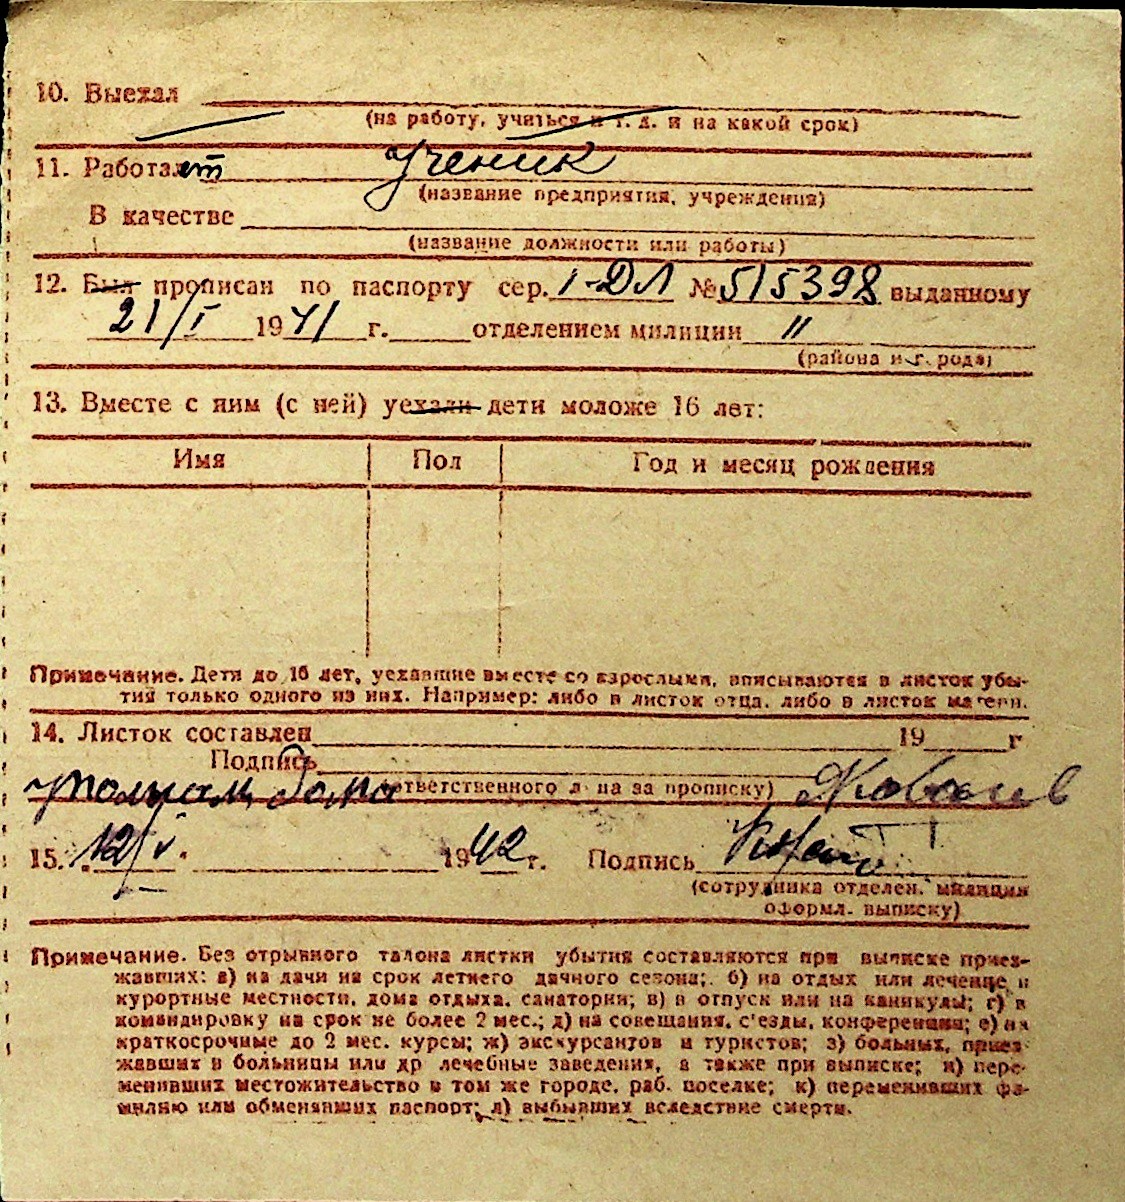 10. Выехал
(на работу, учиться и т. д. и на какой срок)
11. Работает Ученик
(название предприятия, учреждения)
В качестве
(название должности или работы)
12. Был прописан по паспорту сер. I-ДЛ № 515398 выданному
21/I 1941 г. отделением милиции 11
(района и города)
13. Вместе с ним (с ней) уехали дети моложе 16 лет:
Имя Пол Год и месяц рождения
Примечание. Дети до 16 лет, уехавшие вместе со взрослыми, вписываются в листок убы-
тия только одного из них. Например: либо в листок отца, либо в листок матери.
14. Листок составлен 19 г
Подпись
дома (ответственного лица за прописку)
15. 12/V 1942 г. Подпись
(сотрудника отделен. милиции
оформл. выписку)
Примечание. Без отрывного талона листки убытия составляются при выписке приез-
жавших: а) на дачи на срок летнего дачного сезона; б) на отдых или лечение в
курортные местности, дома отдыха, санатории; в) в отпуск или на каникулы; г) в
командировку на срок не более 2 мес.; д) на совещания, с'езды, конференции; е) на
краткосрочные до 2 мес. курсы; ж) экскурсантов и туристов; з) больных, приез-
жавших в больницы или др лечебные заведения, а также при выписке; и) пере-
менивших местожительство в том же городе, раб. поселке; к) переменивших фа-
милию или обменявших паспорт; л) выбывших вследствие смерти.